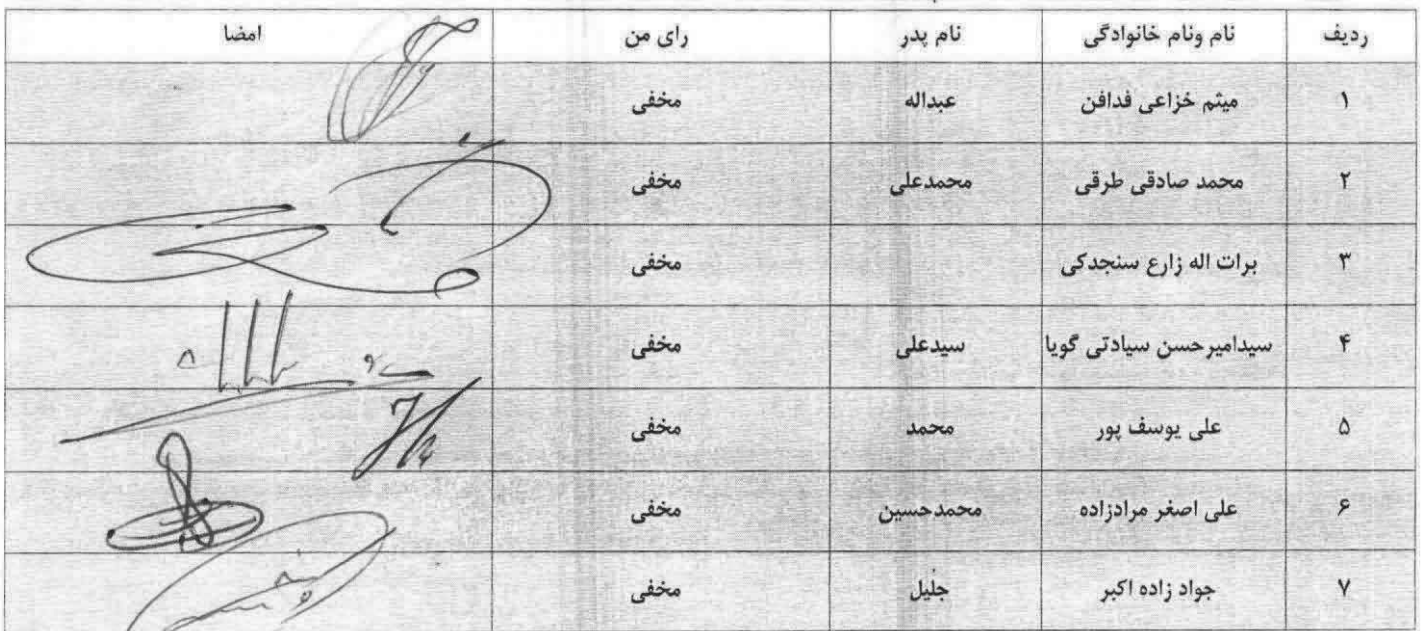 ردیف نام ونام خانوادگی نام پدر رای من امضا
۱ میثم خزاعی فدافن عبداله مخفی
۲ محمد صادقی طرقی محمدعلی مخفی
۳ برات اله زارع سنجدکی مخفی
۴ سیدامیرحسن سیادتی گویا سیدعلی مخفی
۵ علی یوسف پور محمد مخفی
۶ علی اصغر مرادزاده محمدحسین مخفی
۷ جواد زاده اکبر جلیل مخفی